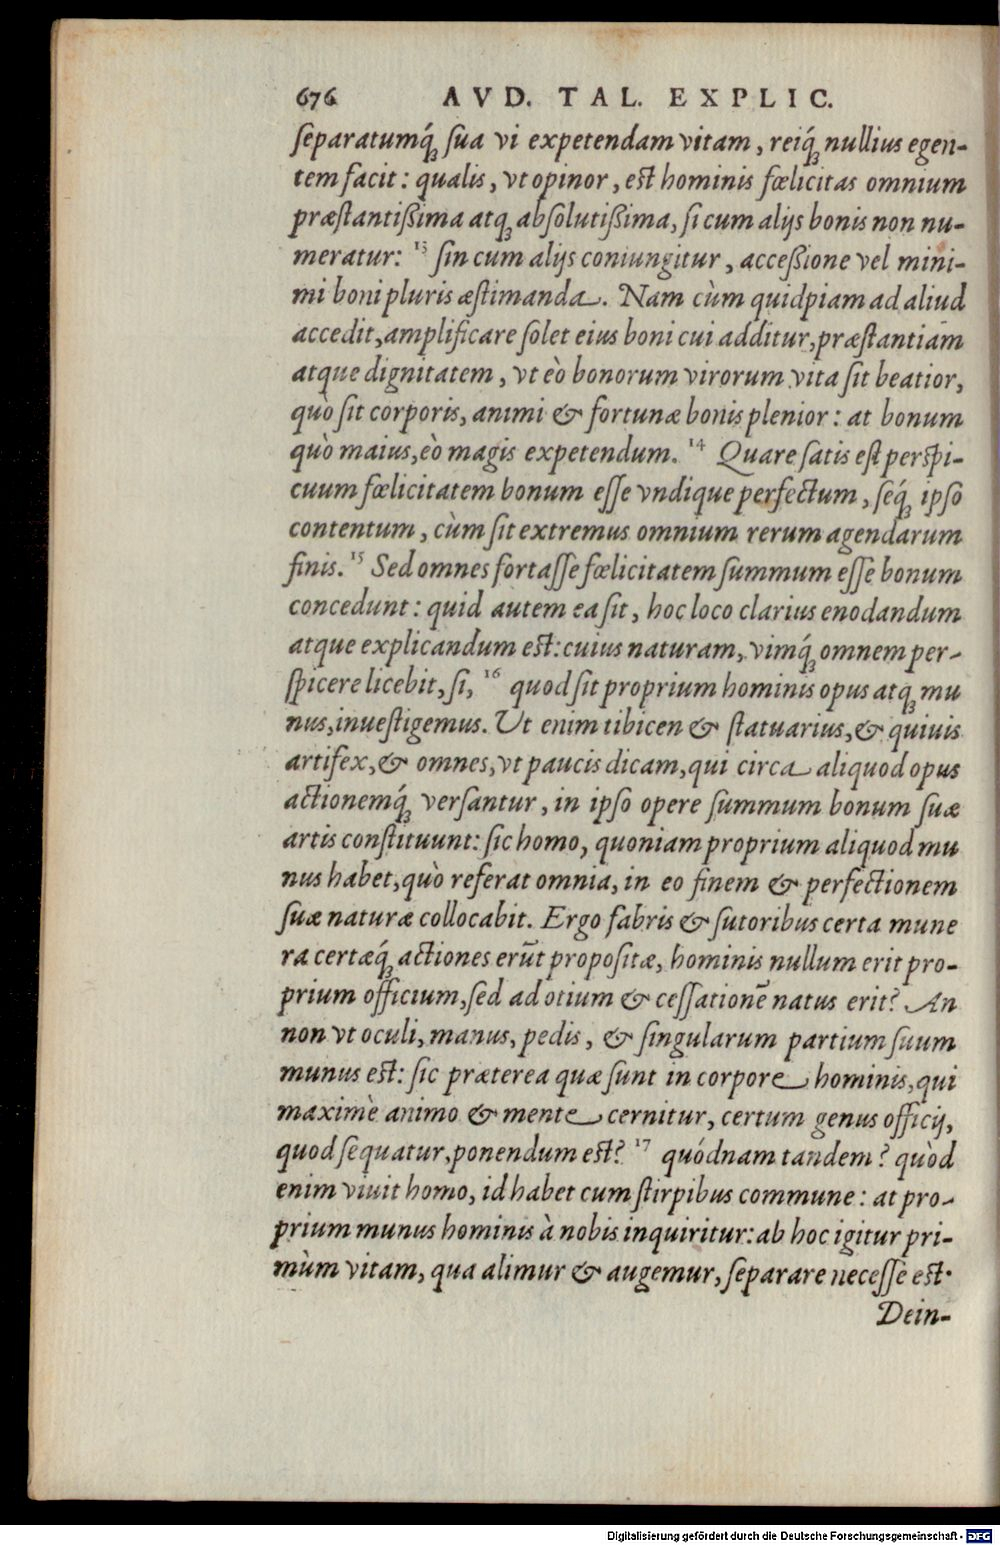 676 AVD. TAL. EXPLIC.
ſeparatumq́ꝫ ſua vi expetendam vitam, reiq́ꝫ nullius egen-
tem facit: qualis, vt opinor, eſt hominis fœlicitas omnium
præſtantißima atqꝫ abſolutißima, ſi cum alijs bonis non nu-
meratur: 13 ſin cum alijs coniungitur, acceßione vel mini-
mi boni pluris æſtimanda. Nam cùm quidpiam ad aliud
accedit, amplificare ſolet eius boni cui additur, præſtantiam
atque dignitatem, vt eò bonorum virorum vita ſit beatior,
quò ſit corporis, animi & fortunæ bonis plenior: at bonum
quò maius, eò magis expetendum. 14 Quare ſatis eſt perſpi-
cuum fœlicitatem bonum eſſe vndique perfectum, ſeq́ꝫ ipſo
contentum, cùm ſit extremus omnium rerum agendarum
finis. 15 Sed omnes fortaſſe fœlicitatem ſummum eſſe bonum
concedunt: quid autem ea ſit, hoc loco clarius enodandum
atque explicandum eſt: cuius naturam, vimq́ꝫ omnem per-
ſpicere licebit, ſi, 16 quod ſit proprium hominis opus atqꝫ mu
nus, inueſtigemus. Ut enim tibicen & ſtatuarius, & quiuis
artifex, & omnes, vt paucis dicam, qui circa aliquod opus
actionemq́ꝫ verſantur, in ipſo opere ſummum bonum ſuæ
artis conſtituunt: ſic homo, quoniam proprium aliquod mu
nus habet, quò referat omnia, in eo finem & perfectionem
ſuæ naturæ collocabit. Ergo fabris & ſutoribus certa mune
ra certæq́ꝫ actiones erūt propoſitæ, hominis nullum erit pro-
prium officium, ſed ad otium & ceſſationē natus erit? An
non vt oculi, manus, pedis, & ſingularum partium ſuum
munus eſt: ſic præterea quæ ſunt in corpore hominis, qui
maximè animo & mente cernitur, certum genus officij,
quod ſequatur, ponendum eſt? 17 quódnam tandem? quòd
enim viuit homo, id habet cum ſtirpibus commune: at pro-
prium munus hominis à nobis inquiritur: ab hoc igitur pri-
mùm vitam, qua alimur & augemur, ſeparare neceſſe eſt.
Dein-
Digitalisierung gefördert durch die Deutsche Forschungsgemeinschaft - DFG